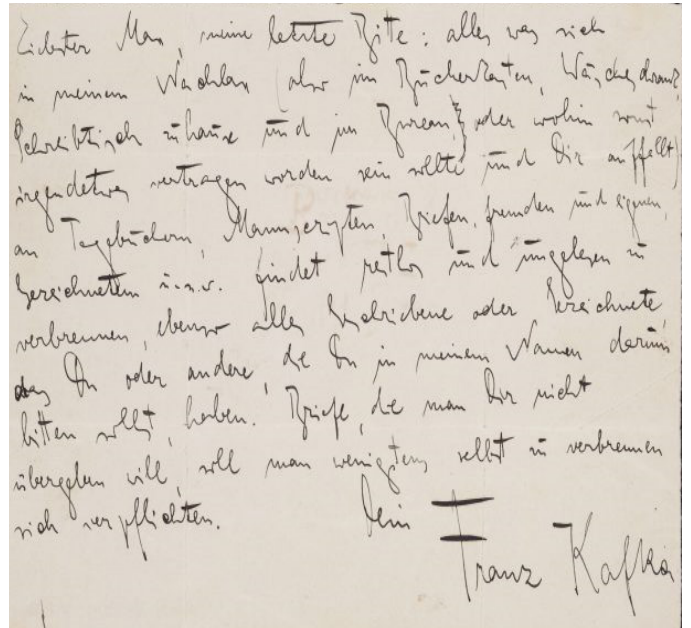 Liebster Max, meine letzte Bitte: alles was sich
in meinem Nachlass (also im Bücherkasten, Wäscheschrank,
Schreibtisch zuhause und im Bureau, oder wohin sonst
irgendetwas vertragen worden sein sollte und Dir auffällt)
an Tagebüchern, Manuscripten, Briefen, fremden und eignen,
Gezeichnetem u.s.w. findet restlos und ungelesen zu
verbrennen, ebenso alles Geschriebene oder Gezeichnete,
das Du oder andre, die Du in meinem Namen darum
bitten sollst, haben. Briefe, die man Dir nicht
übergeben will, soll man wenigstens selbst zu verbrennen
sich verpflichten.
Dein
Franz Kafka